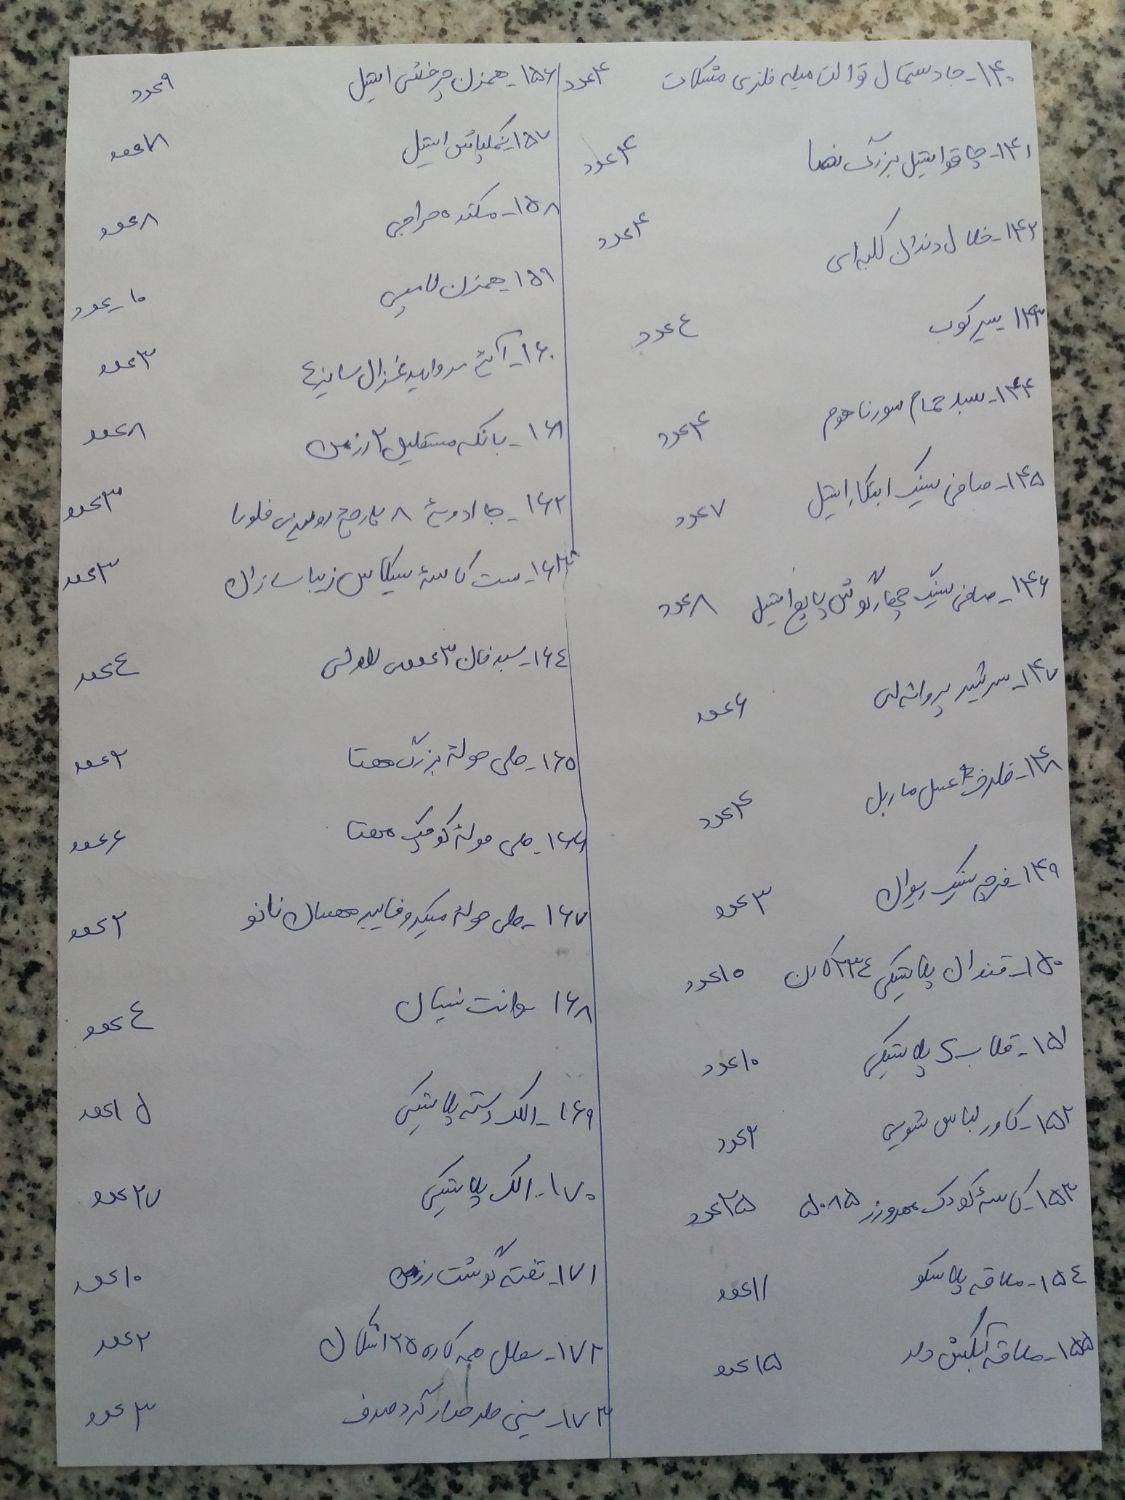 ۱۴۰- جا دستمال توالت میله فلزی مشکات ۴ عدد
۱۴۱- چاقو استیل بزرگ نصا ۴ عدد
۱۴۲- خلال دندان کلبه ای ۴ عدد
۱۴۳ سیر کوب ٤ عدد
۱۴۴- سبد حمام سورنا هوم ۴ عدد
۱۴۵- صافی سینک ابتکار استیل ۷ عدد
۱۴۶- صافی سینک چهار گوش پایه استیل ۸ عدد
۱۴۷- سرشیر پروانه ای ۶ عدد
۱۴۸- ظرف عسل ماربل ۴ عدد
۱۴۹- فرچه سینک رویال ۳ عدد
۱۵۰- قندان پلاستیکی ۲۳٤ ۱۰ عدد
۱۵۱- قلاب S پلاستیکی ۱۰ عدد
۱۵۲- کاور لباس شویی ۲ عدد
۱۵۳- کاسه کودک بهروز ۵۰۸۵ ۲۵ عدد
۱۵٤- ملاقه پلاسکو ۱۱ عدد
۱۵۵- ملاقه آبکش دار ۱۵ عدد
۱۵۶- همزن چرخشی استیل ۹ عدد
۱۵۷- نمکپاش استیل عدد
۱۵۸- مکنده حراجی ۸ عدد
۱۵۹- همزن لامپی ۱۰ عدد
۱۶۰- آینه مروارید غزال سایز ٤ ۳ عدد
۱۶۱- بانکه مستطیل ۲ رزمن ۸ عدد
۱۶۲- جا ادویه ۸ پارچه رومیزی فلورا ۳ عدد
۱۶۳- ست کاسه سیکاس زیبا سازان ۳ عدد
۱۶٤- سبد نان ۳ عددی ٤ عدد
۱۶۵- طی حوله بزرگ مهتا ۲ عدد
۱۶۶- طی حوله کوچک مهتا ۶ عدد
۱۶۷- طی حوله میکروفایبر مهسان نانو ۲ عدد
۱۶۸ نیپال ٤ عدد
۱۶۹- الک دسته پلاستیکی ۱۵ عدد
۱۷۰- الک پلاستیکی ۲۷ عدد
۱۷۱- تخته گوشت رزمن ۱۰ عدد
۱۷۲- سطل همه کاره ۲۵ اشکان ۲ عدد
۱۷۳- سینی طرحدار گرد صدف ۳ عدد